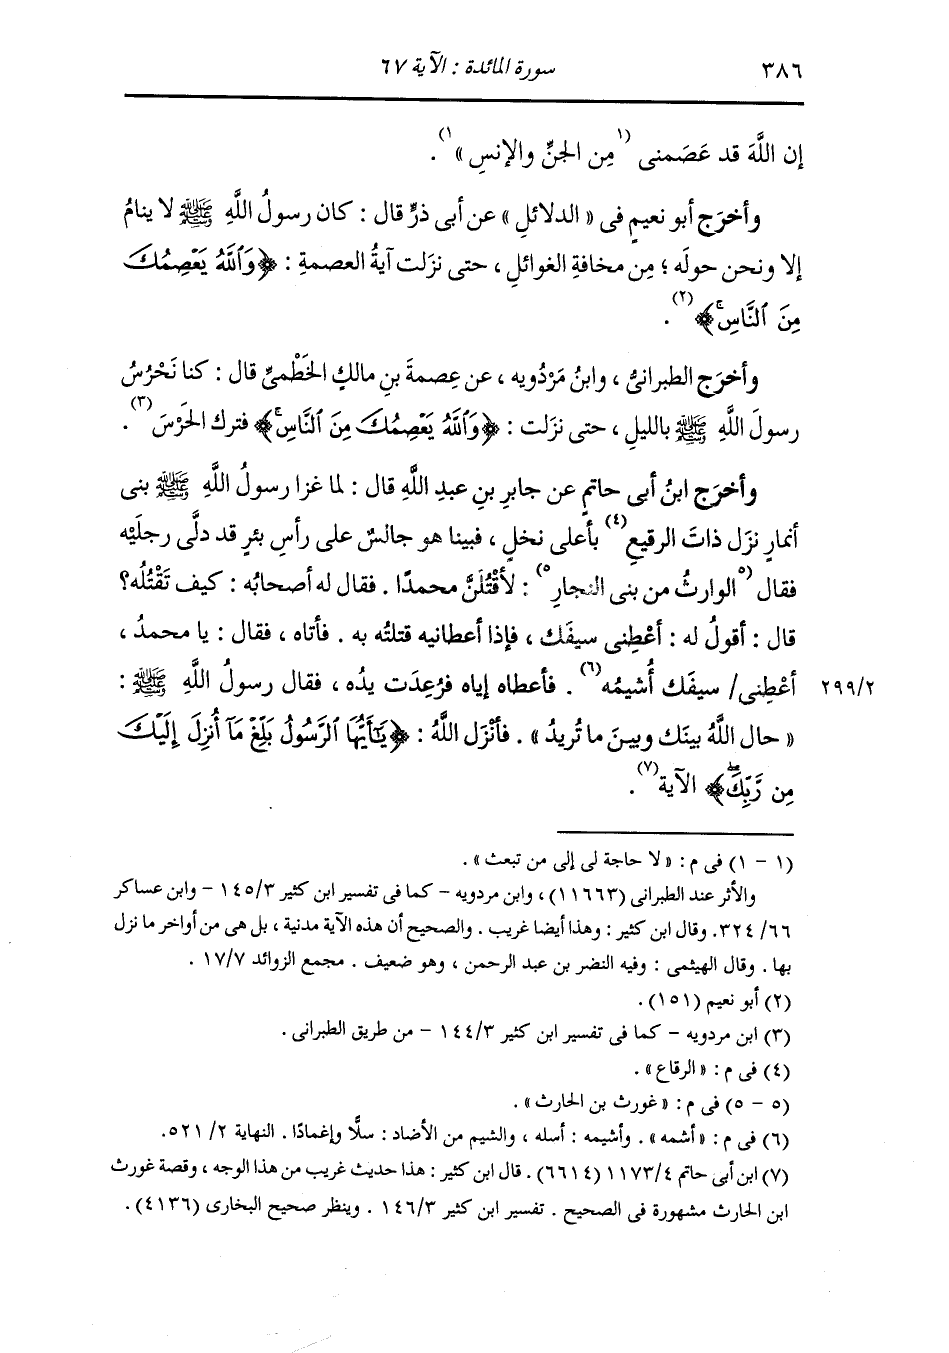 ٣٨٦ سورة المائدة : الآية ٦٧
إن اللَّهَ قد عَصَمنى (١ مِن الجنِّ والإنسِ » ١) .
وأخرَج أبو نعيمٍ فى « الدلائلِ » عن أبى ذرٍّ قال : كان رسولُ اللَّهِ ﷺ لا ينامُ
إلا ونحن حولَه ؛ مِن مخافةِ الغوائلِ ، حتى نزَلت آيةُ العصمةِ : ﴿ وَٱللَّهُ يَعْصِمُكَ
مِنَ ٱلنَّاسِۚ ﴾ (٢) .
وأخرَج الطبرانىُّ ، وابنُ مَرْدُويه ، عن عِصمةَ بنِ مالكٍ الخَطْمىِّ قال : كنا نَحْرُسُ
رسولَ اللَّهِ ﷺ بالليلِ ، حتى نزَلت : ﴿ وَٱللَّهُ يَعْصِمُكَ مِنَ ٱلنَّاسِۚ ﴾ فترك الحَرْسَ (٣) .
وأخرَج ابنُ أبى حاتمٍ عن جابرِ بنِ عبدِ اللَّهِ قال : لما غزا رسولُ اللَّهِ ﷺ بنى
أنمارٍ نزَل ذاتَ الرقيعِ (٤) بأعلى نخلٍ ، فبينا هو جالسٌ على رأسِ بئرٍ قد دلَّى رجلَيْه
فقال (٥ الوارثُ من بنى النجارِ ٥) : لأَقْتُلَنَّ محمدًا . فقال له أصحابُه : كيف تَقْتُلُه ؟
قال : أقولُ له : أعْطِنى سيفَك ، فإذا أعطانيه قتلتُه به . فأتاه ، فقال : يا محمدُ ،
أعْطِنى/ سيفَك أُشيمُه (٦) . فأعطاه إياه فرُعِدَت يدُه ، فقال رسولُ اللَّهِ ﷺ : ٢٩٩/٢
« حال اللَّهُ بينَك وبينَ ما تُريدُ » . فأَنْزَل اللَّهُ : ﴿ يَٰٓأَيُّهَا ٱلرَّسُولُ بَلِّغْ مَآ أُنزِلَ إِلَيْكَ
مِن رَّبِّكَۖ ﴾ الآية (٧) .
(١ - ١) فى م : « لا حاجة لى إلى من تبعث » .
والأثر عند الطبرانى (١١٦٦٣) ، وابن مردويه - كما فى تفسير ابن كثير ١٤٥/٣ - وابن عساكر
٣٢٤/٦٦. وقال ابن كثير : وهذا أيضا غريب . والصحيح أن هذه الآية مدنية ، بل هى من أواخر ما نزل
بها . وقال الهيثمى : وفيه النضر بن عبد الرحمن ، وهو ضعيف . مجمع الزوائد ١٧/٧ .
(٢) أبو نعيم (١٥١) .
(٣) ابن مردويه - كما فى تفسير ابن كثير ١٤٤/٣ - من طريق الطبرانى .
(٤) فى م : « الرقاع » .
(٥ - ٥) فى م : « غورث بن الحارث » .
(٦) فى م : « أشمه » . وأشيمه : أسله ، والشيم من الأضداد : سلًّا وإغمادًا . النهاية ٥٢١/٢.
(٧) ابن أبى حاتم ١١٧٣/٤ (٦٦١٤) . قال ابن كثير : هذا حديث غريب من هذا الوجه ، وقصة غورث
ابن الحارث مشهورة فى الصحيح . تفسير ابن كثير ١٤٦/٣ . وينظر صحيح البخارى (٤١٣٦) .